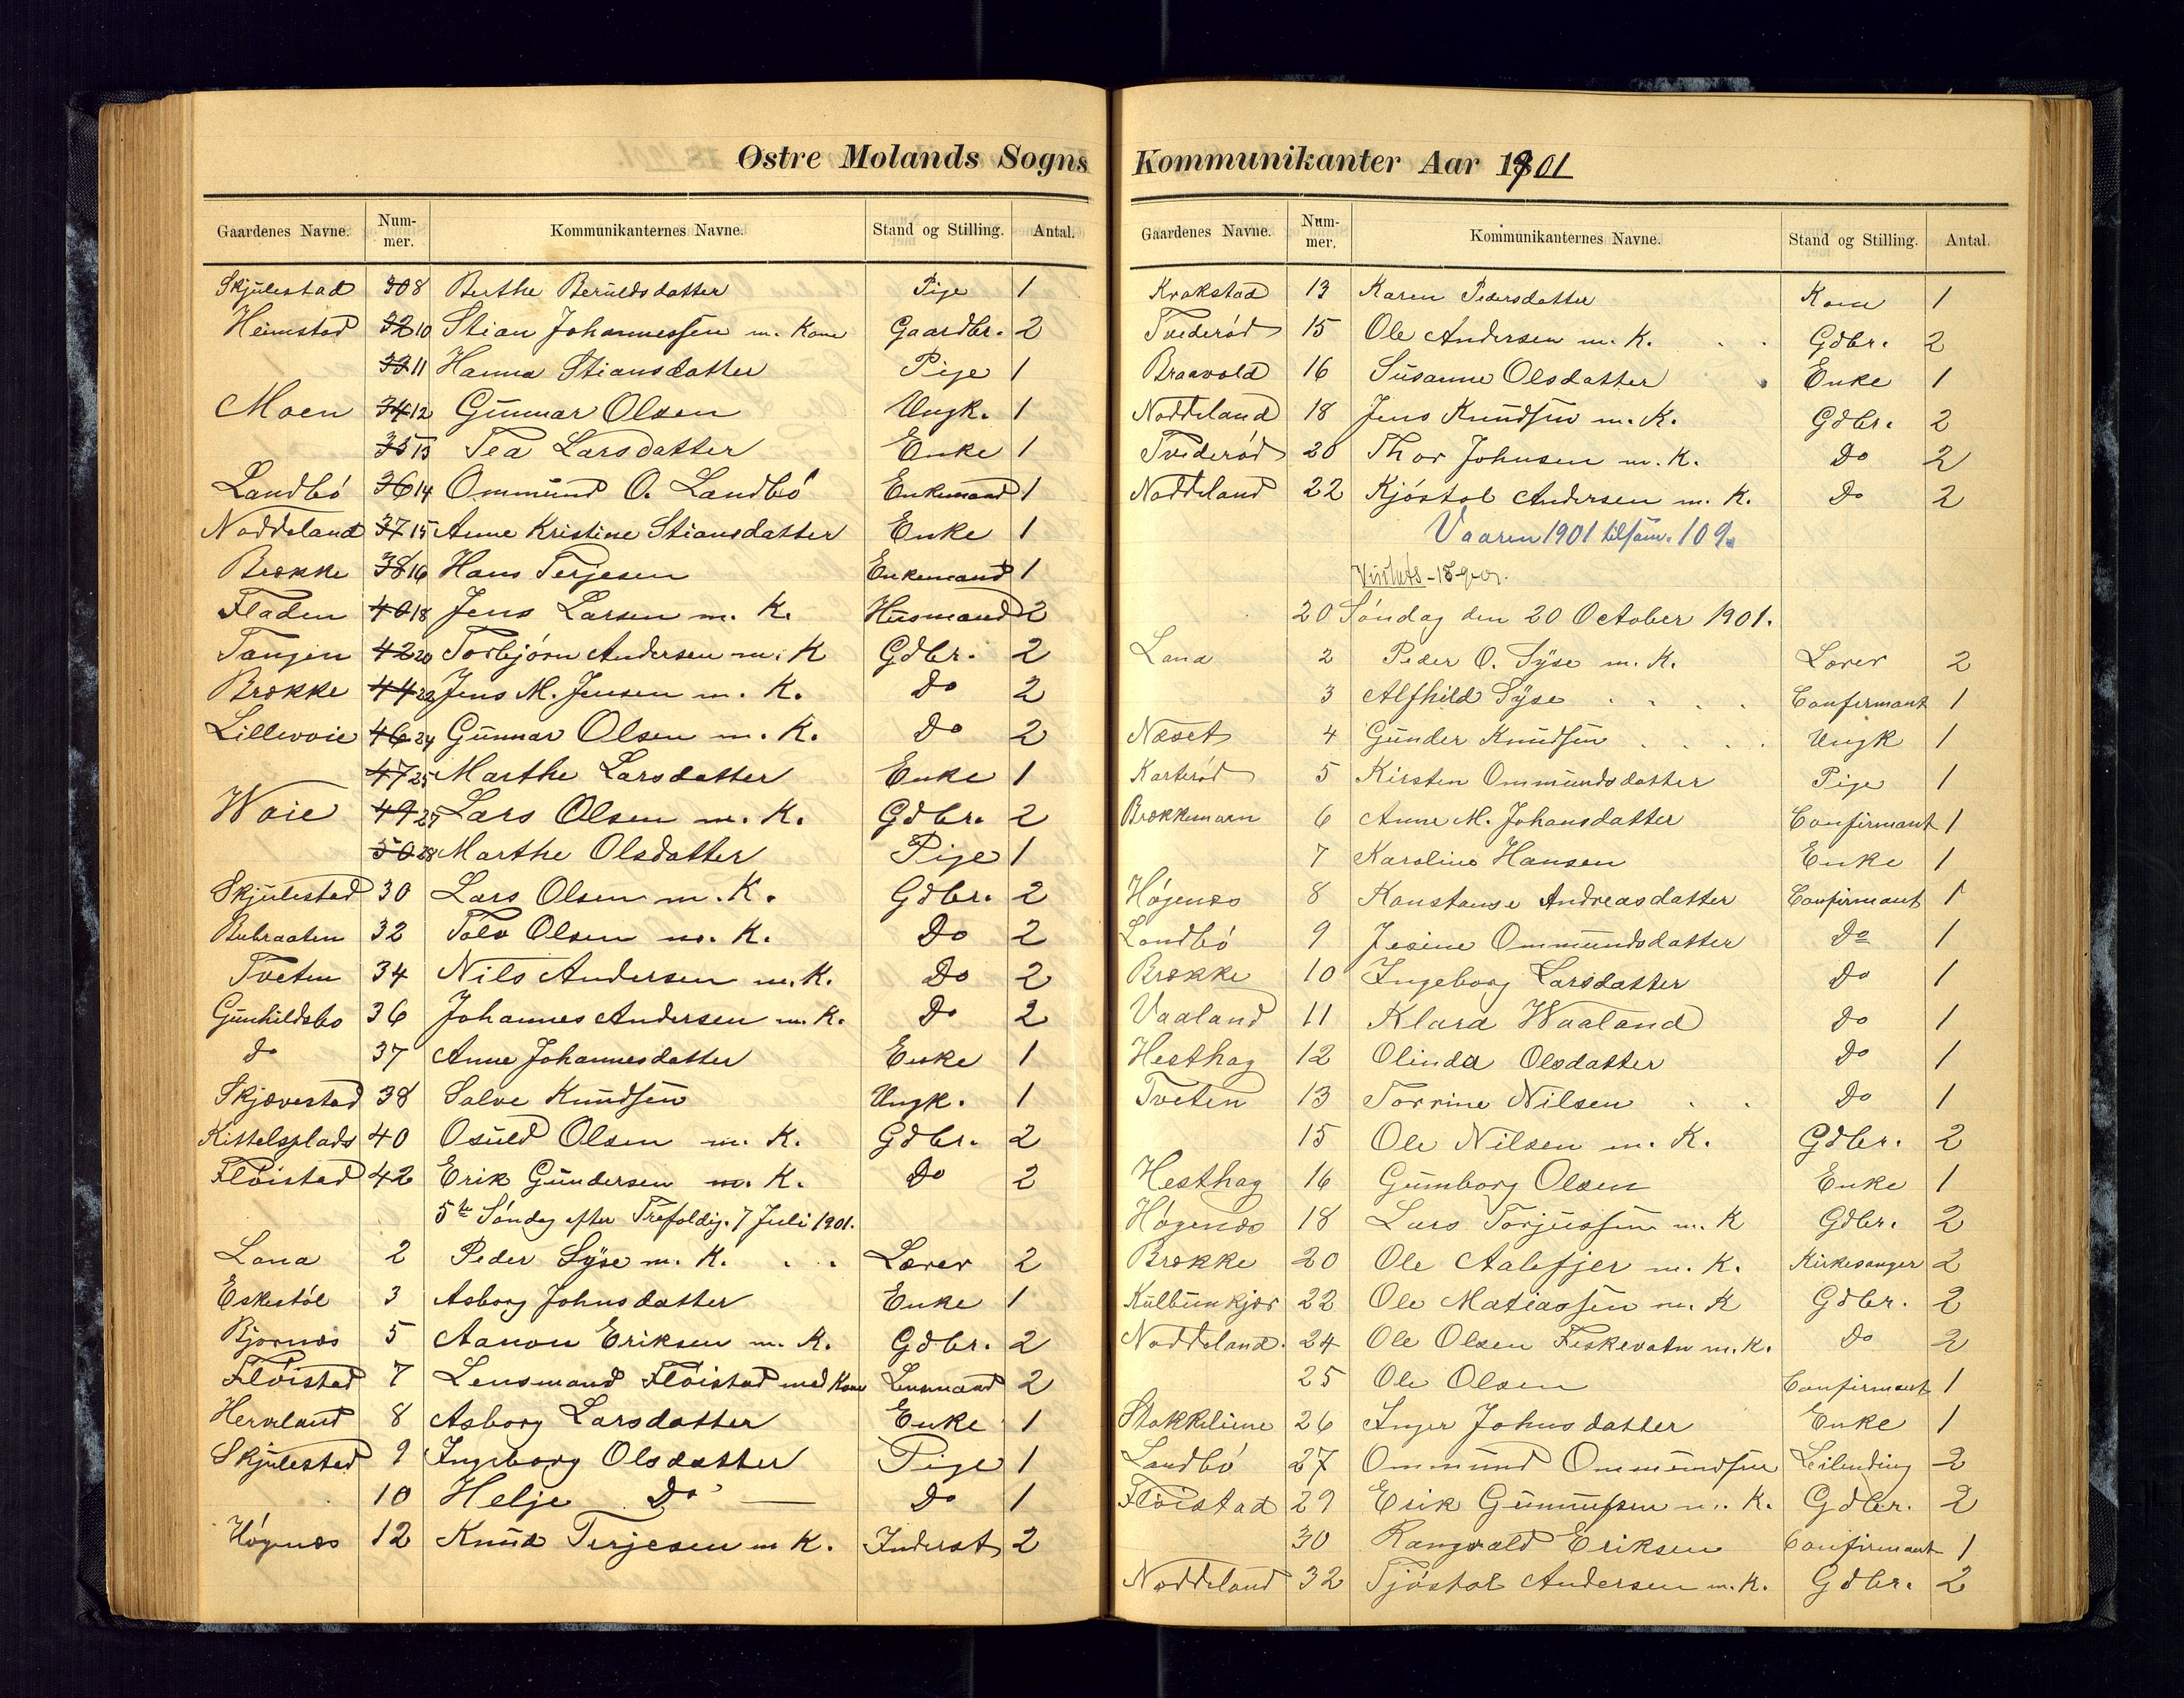 Østre Molands Sogns
Gaardenes Navne. Num-mer. Kommunikanternes Navne. Stand og Stilling. Antal.
Skjulestad 308 Berthe Beruldsdatter Pige 1
Heimstad 3210 Stian Johannessen m. Kone Gaardbr. 2
3311 Hanna Stiansdatter Pige 1
Moen 3412 Gunnar Olsen Ungk. 1
3513 Tea Larsdatter Enke 1
Landbö 3614 Ommund O. Landbö Enkemand 1
Noddeland 3715 Anne Kristine Stiansdatter Enke 1
Brække 3816 Hans Terjesen Enkemand 1
Fladen 4018 Jens Larsen m. K. Husmand 2
Tangen 4220 Torbjörn Andersen m. K Gdbr. 2
Brække 4422 Jens M. Jensen m. K. Do 2
Lillevaie 4624 Gunnar Olsen m. K. Do 2
4725 Marthe Larsdatter Enke 1
Waie 4927 Lars Olsen m. K. Gdbr. 2
5028 Marthe Olsdatter Pige 1
Skjulestad 30 Lars Olsen m. K. Gdbr. 2
32 Talv Olsen m. K. Do 2
Tveten 34 Nils Andersen m. K. Do 2
Gunhildsbo 36 Johannes Andersen m. K. Do 2
do 37 Anne Johannesdatter Enke 1
Skjævestad 38 Salve Knudsen Ungk. 1
Kittelsplads 40 Osuld Olsen m. K. Gdbr. 2
Flöistad 42 Erik Gundersen m. K. Do 2
5te Söndag efter Trefoldig. 7 Juli 1901.
Lana 2 Peder Syse m. K. Lærer 2
Eskestöl 3 Asborg Johnsdatter Enke 1
Bjornæs 5 Aanon Eriksen m. K. Gdbr. 2
Flöistad 7 Lensmand Flöistad med Kone Lensmand 2
Herveland 8 Asborg Larsdatter Enke 1
Skjulestad 9 Ingeborg Olsdatter Pige 1
10 Helje Do Do 1
Högenæs 12 Knud Terjesen m K. Inderst 2
Kommunikanter Aar 1901
Gaardenes Navne. Num-mer. Kommunikanternes Navne. Stand og Stilling. Antal.
Krakstad 13 Karen Pedersdatter Kone 1
Tvederöd 15 Ole Andersen m. K. Gdbr. 2
Braavold 16 Susanne Olsdatter Enke 1
Noddeland 18 Jens Knudsen m. K. Gdbr. 2
Tvederöd 20 Thor Johnsen m. K. Do 2
Noddeland 22 Kjöstol Andersen m. K. Do 2
Vaaren 1901 tilsam. 109.
20 Söndag den 20 October 1901.
Lana 2 Peder O. Syse m. K. Lærer 2
3 Alfhild Syse Confirmant 1
Næset 4 Gunder Knudsen Ungk 1
Karteröd 5 Kirsten Ommundsdatter Pige 1
Brækkemoen 6 Anne M. Johansdatter Confirmant 1
7 Karoline Hansen Enke 1
Högenæs 8 Konstanse Andreasdatter Confirmant 1
Landbö 9 Jesine Ommundsdatter Do 1
Brække 10 Ingeborg Larsdatter Do 1
Vaaland 11 Klara Waaland Do 1
Hesthag 12 Olinda Olsdatter Do 1
Tveten 13 Torrine Nilsen Do 1
15 Ole Nilsen m. K. Gdbr. 2
Hesthag 16 Gumborg Olsen Enke 1
Högenæs 18 Lars Torjussen m. K Gdbr. 2
Brække 20 Ole Aalefjer m. K. Kirkesanger 2
Kulbunkjær 22 Ole Matiassen m. K Gdbr. 2
Noddeland. 24 Ole Olsen Fiskevatn m. K. Do 2
25 Ole Olsen Confirmant 1
Stokkeliene 26 Inger Johnsdatter Enke 1
Landbö 27 Ommund Ommundsen Leilending 2
Flöistad 29 Erik Gunnufsen m. K. Gdbr. 2
30 Rangvald Eriksen Confirmant 1
Noddeland 32 Tjöstol Andersen m. K. Gdbr. 2